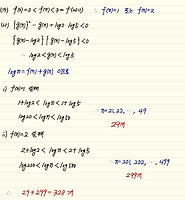 (가) f(n)=0 < f(n) < 3 = f(1000)   ∴ f(n)=1 또는 f(n)=2
(나) {g(n)}² - g(n) + log2·log5 < 0
{g(n)-log2}{g(n)-log5} < 0
∴ log2 < g(n) < log5
logn = f(n) + g(n) 이므로
i) f(n)=1 일때
1+log2 < logn < 1+log5
log20 < logn < log50
∴ n=21, 22, ⋯, 49
29개
ii) f(n)=2 일때
2+log2 < logn < 2+log5
log200 < logn < log500
∴ n=201, 202, ⋯, 499
299개
∴ 29+299=328개